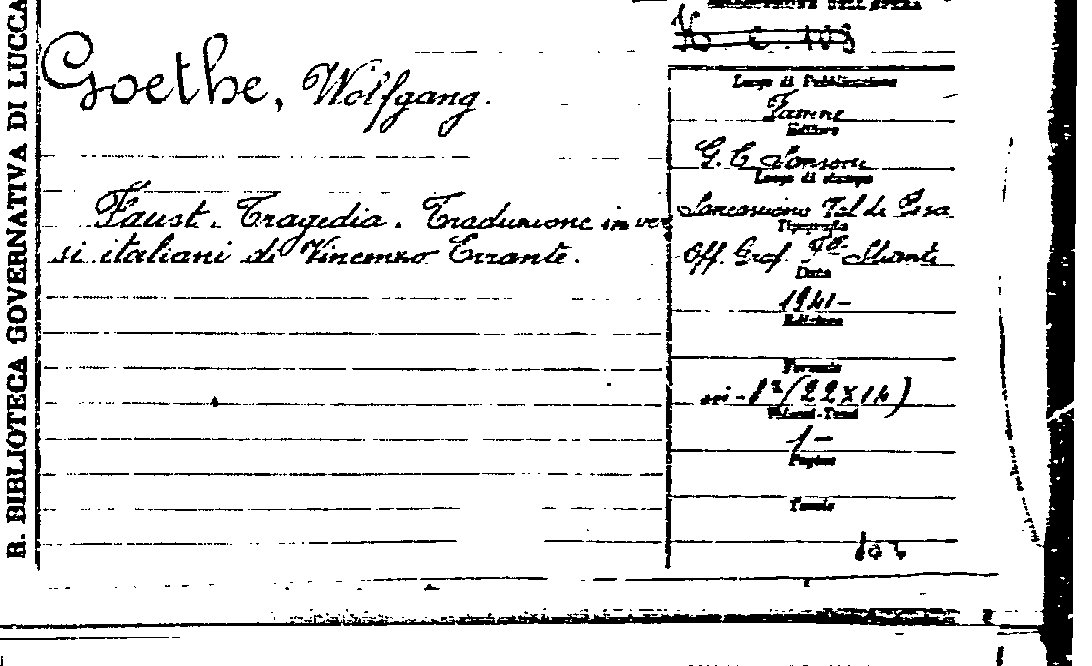 R. BIBLIOTECA GOVERNATIVA DI LUCCA
COLLOCAZIONE DELL'OPERA
Goethe, Wolfgang.
Faust. Tragedia. Traduzione in ver
si italiani di Vincenzo Errante.
Luogo di Pubblicazione
Firenze
Editore
G. C. Sansoni
Luogo di stampa
Sancasciano Val di Pesa
Tipografia
Off. Graf. Fll Stianti
Data
1941-
Edizione
Formato
in-8º (22x14)
Volumi-Tomi
1-
Pagine
Tavole